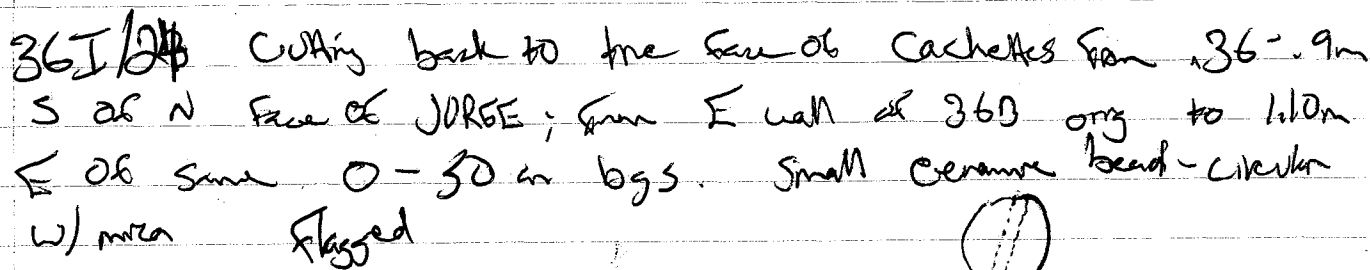 36I/24 Cutting back to the face of Cachettes from .36-.9m
S of N Face of JORGE; from E wall of 36B orig to 1.10m
E of same 0-30 cm bgs. Small ceramic bead-circular
w/ mica Flagged